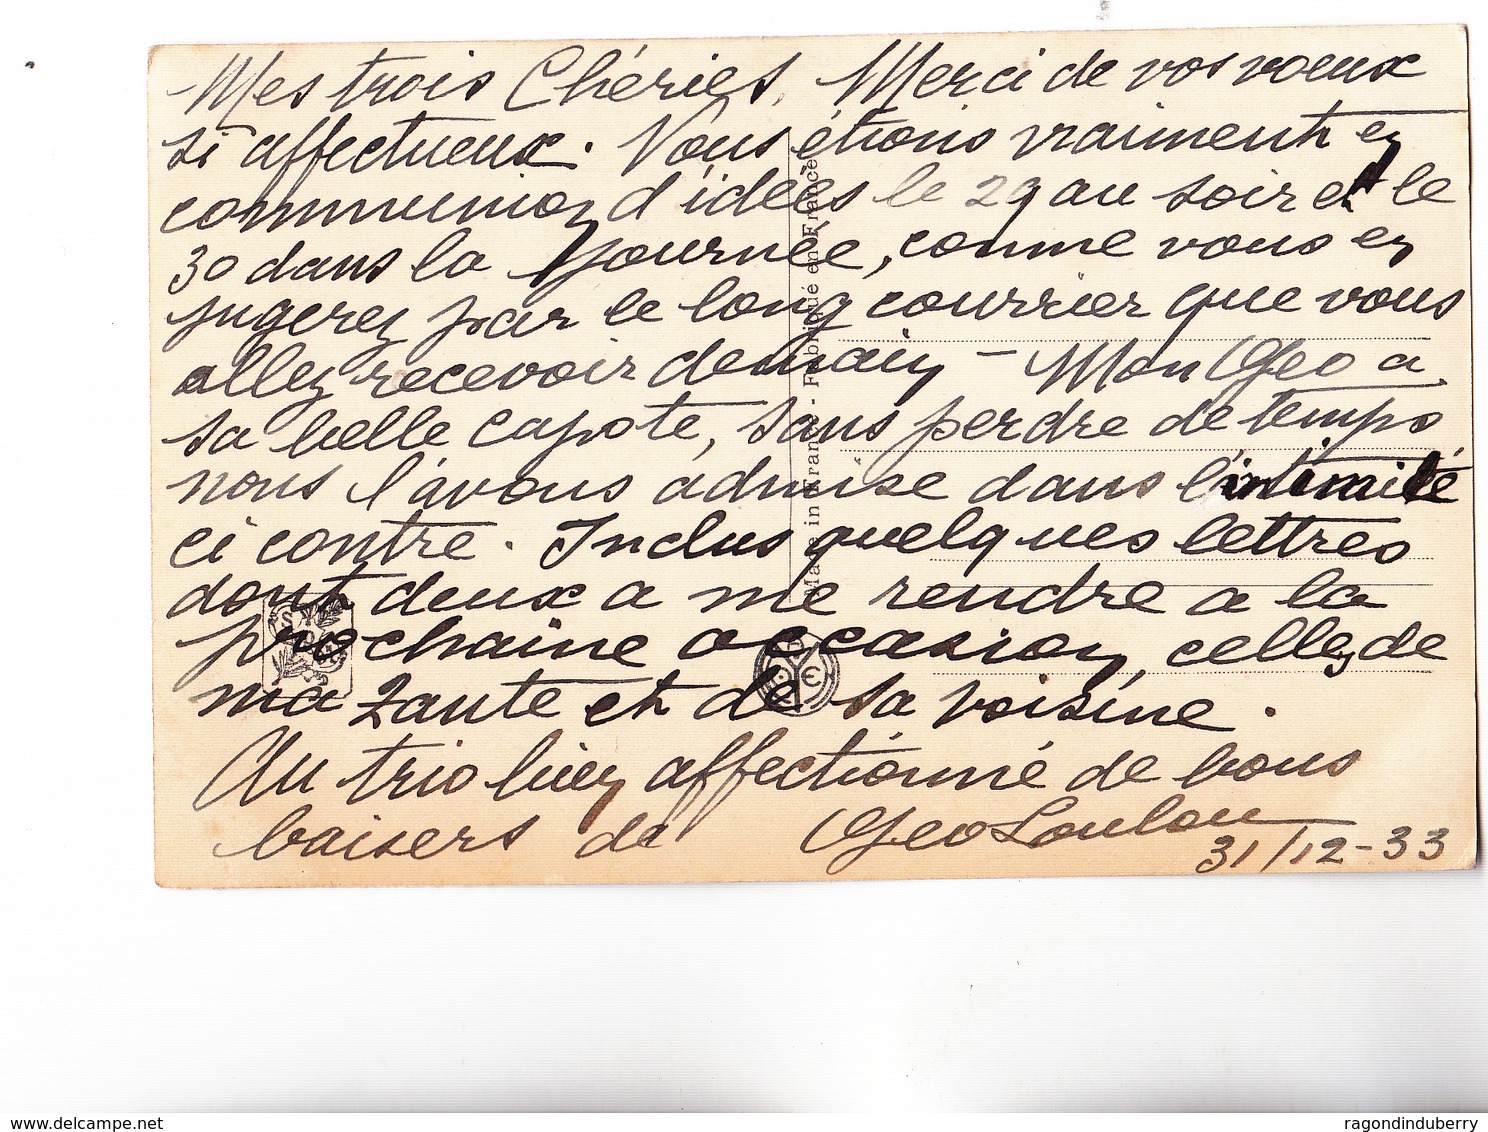 Mes trois Chéries, Merci de vos voeux
si affectueux. Vous étions vraiment en
communion d'idées le 29 au soir et le
30 dans la Journée, comme vous en
jugerez par le long courrier que vous
allez recevoir demain – Mon Geo a
sa belle capote, sans perdre de temps
nous l'avons admise dans l'intimité
ci contre. Inclus quelques lettres
dont deux a me rendre a la
prochaine occasion, celles de
ma Zante et de sa voisine.
Au trio bien affectionné de bons
baisers de Geo Loulou
31/12-33
Made in France - Fabriqué en France
delcampe.net
ragondinduberry